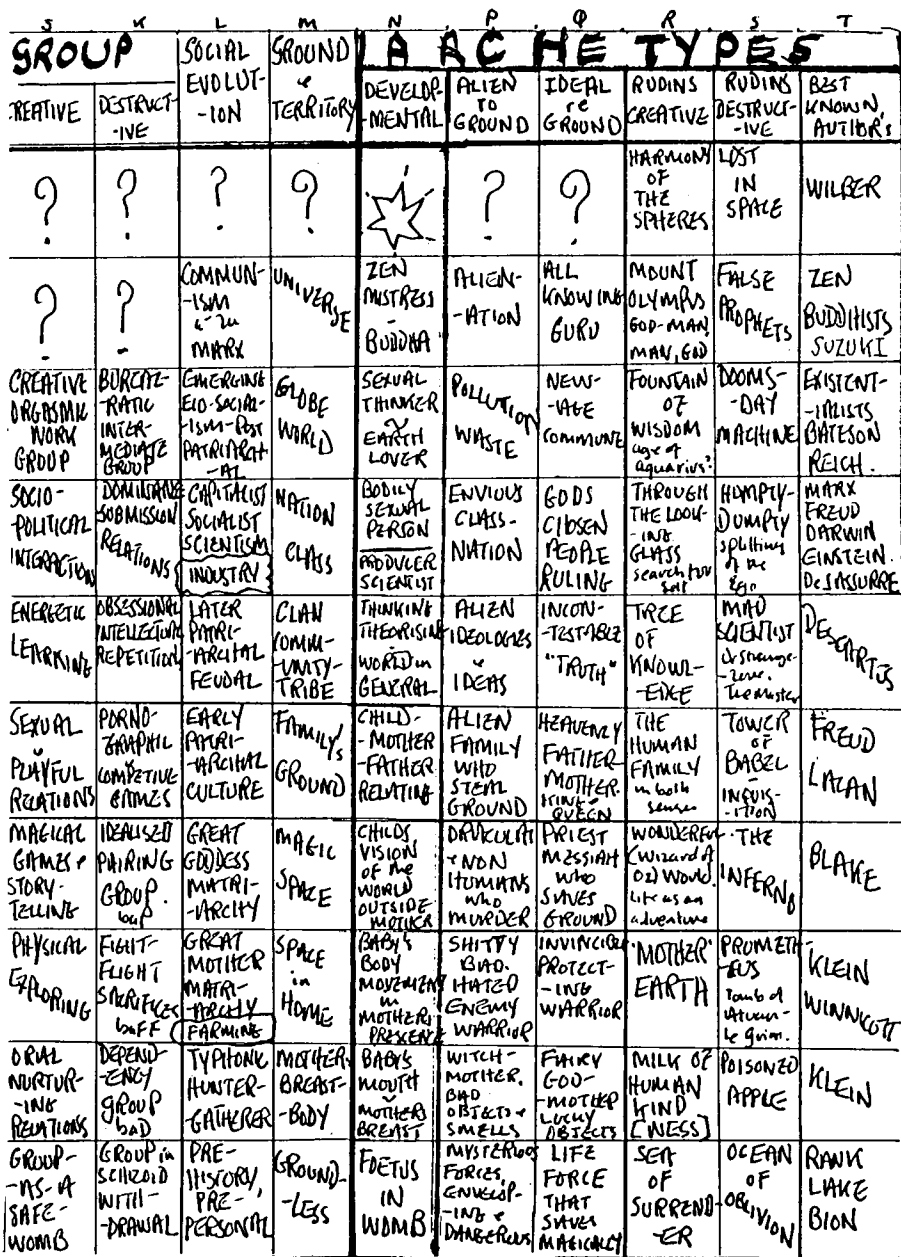 J K L M N P Q R S T
GROUP
SOCIAL
EVOLUT-
-ION
GROUND
&
TERRITORY
ARCHETYPES
CREATIVE
DESTRUCT-
-IVE
DEVELOP-
-MENTAL
ALIEN
TO
GROUND
IDEAL
re
GROUND
RUDINS
CREATIVE
RUDINS
DESTRUCT-
-IVE
BEST
KNOWN
AUTHOR's
?
?
?
?
?
?
HARMONY
OF
THE
SPHERES
LOST
IN
SPACE
WILBER
?
?
COMMUN-
-ISM
MARX
UNIVERSE
ZEN
MISTRESS
BUDDHA
ALIEN-
-ATION
ALL
KNOWING
GURU
MOUNT
OLYMPUS
GOD-MAN,
MAN, GOD
FALSE
PROPHETS
ZEN
BUDDHISTS
SUZUKI
CREATIVE
ORGASMIC
WORK
GROUP
BURCAZ-
-RATIC
INTER-
MEDIATE
GROUP
EMERGING
ECO-SOCIAL-
-ISM-POST
PATRIARCH-
-AL
GLOBE
WORLD
SEXUAL
THINKER
~
EARTH
LOVER
POLLUTION
WASTE
NEW-
-AGE
COMMUNE
FOUNTAIN
OF
WISDOM
age of
aquarius?
DOOMS-
-DAY
MACHINE
EXISTENT-
-IALISTS
BATESON
REICH.
SOCIO-
POLITICAL
INTERACTION
DOMINANCE
SUBMISSION
RELATIONS
CAPITALIST
SOCIALIST
SCIENTISM
INDUSTRY
NATION
CLASS
BODILY
SEXUAL
PERSON
PRODUCER
SCIENTIST
ENVIOUS
CLASS-
NATION
GODS
CHOSEN
PEOPLE
RULING
THROUGH
THE LOOK-
-ING
GLASS
search for
self
HUMPTY-
DUMPTY
splitting
of the
Ego
MARX
FREUD
DARWIN
EINSTEIN.
DeSASSURRE
ENERGETIC
LEARNING
OBSESSIONAL
INTELLECTUAL
REPETITION
LATER
PATRI-
-ARCHAL
FEUDAL
CLAN
COMM-
-UNITY-
TRIBE
THINKING
THEORISING
~
WORLD in
GENERAL
ALIEN
IDEOLOGIES
&
IDEAS
INCON-
-TESTABLE
"TRUTH"
TREE
OF
KNOWL-
-EDGE
MAD
SCIENTIST
Dr Strange-
-love.
The Master
DESCARTES
SEXUAL
~
PLAYFUL
RELATIONS
PORNO-
GRAPHIC
&
COMPETIVE
GAMES
EARLY
PATRI-
-ARCHAL
CULTURE
FAMILY's
GROUND
CHILD-
-MOTHER
-FATHER
RELATING
ALIEN
FAMILY
WHO
STEAL
GROUND
HEAVENLY
FATHER
MOTHER
KING &
QUEEN
THE
HUMAN
FAMILY
in both
senses
TOWER
OF
BABEL
-
INQUIS-
-ITION
FREUD
LACAN
MAGICAL
GAMES &
STORY-
TELLING
IDEALISED
PAIRING
GROUP
baP
GREAT
GODDESS
MATRI-
-ARCHY
MAGIC
SPACE
CHILDS
VISION
OF the
WORLD
OUTSIDE
MOTHER
DRACULA
& NON
HUMANS
who
MURDER
PRIEST
MESSIAH
who
SAVES
GROUND
WONDERFUL
(Wizard of
OZ) World.
Life as an
adventure
THE
INFERNO
BLAKE
PHYSICAL
EXPLORING
FIGHT-
FLIGHT
SACRIFICES
baFF
GREAT
MOTHER
MATRI-
-ARCHY
FARMING
SPACE
in
HOME
BABY's
BODY
MOVEMENT
in
MOTHERS
PRESENCE
SHITTY
BAD.
HATED
ENEMY
WARRIOR
INVINCIBLE
PROTECT-
-ING
WARRIOR
'MOTHER'
EARTH
PROMETH-
-EUS
KLEIN
WINNICOTT
ORAL
NURTUR-
-ING
RELATIONS
DEPEND-
-ENCY
GROUP
baD
TYPHONIC
HUNTER-
-GATHERER
MOTHERS
BREAST-
-BODY
BABYS
MOUTH
~
MOTHERS
BREAST
WITCH-
MOTHER,
BAD
OBJECTS &
SMELLS
FAIRY
GOD-
-MOTHER
LUCKY
OBJECTS
MILK OF
HUMAN
KIND
[NESS]
POISONED
APPLE
KLEIN
GROUP-
-AS-A
SAFE-
WOMB
GROUP in
SCHIZOID
WITH-
-DRAWAL
PRE-
HISTORY,
PRE-
PERSONAL
GROUND-
-LESS
FOETUS
IN
WOMB
MYSTERIOUS
FORCES,
ENVELOP-
-ING &
DANGEROUS
LIFE
FORCE
THAT
SAVES
MAGICALLY
SEA
OF
SURREND-
-ER
OCEAN
OF
OBLIVION
RANK
LAKE
BION